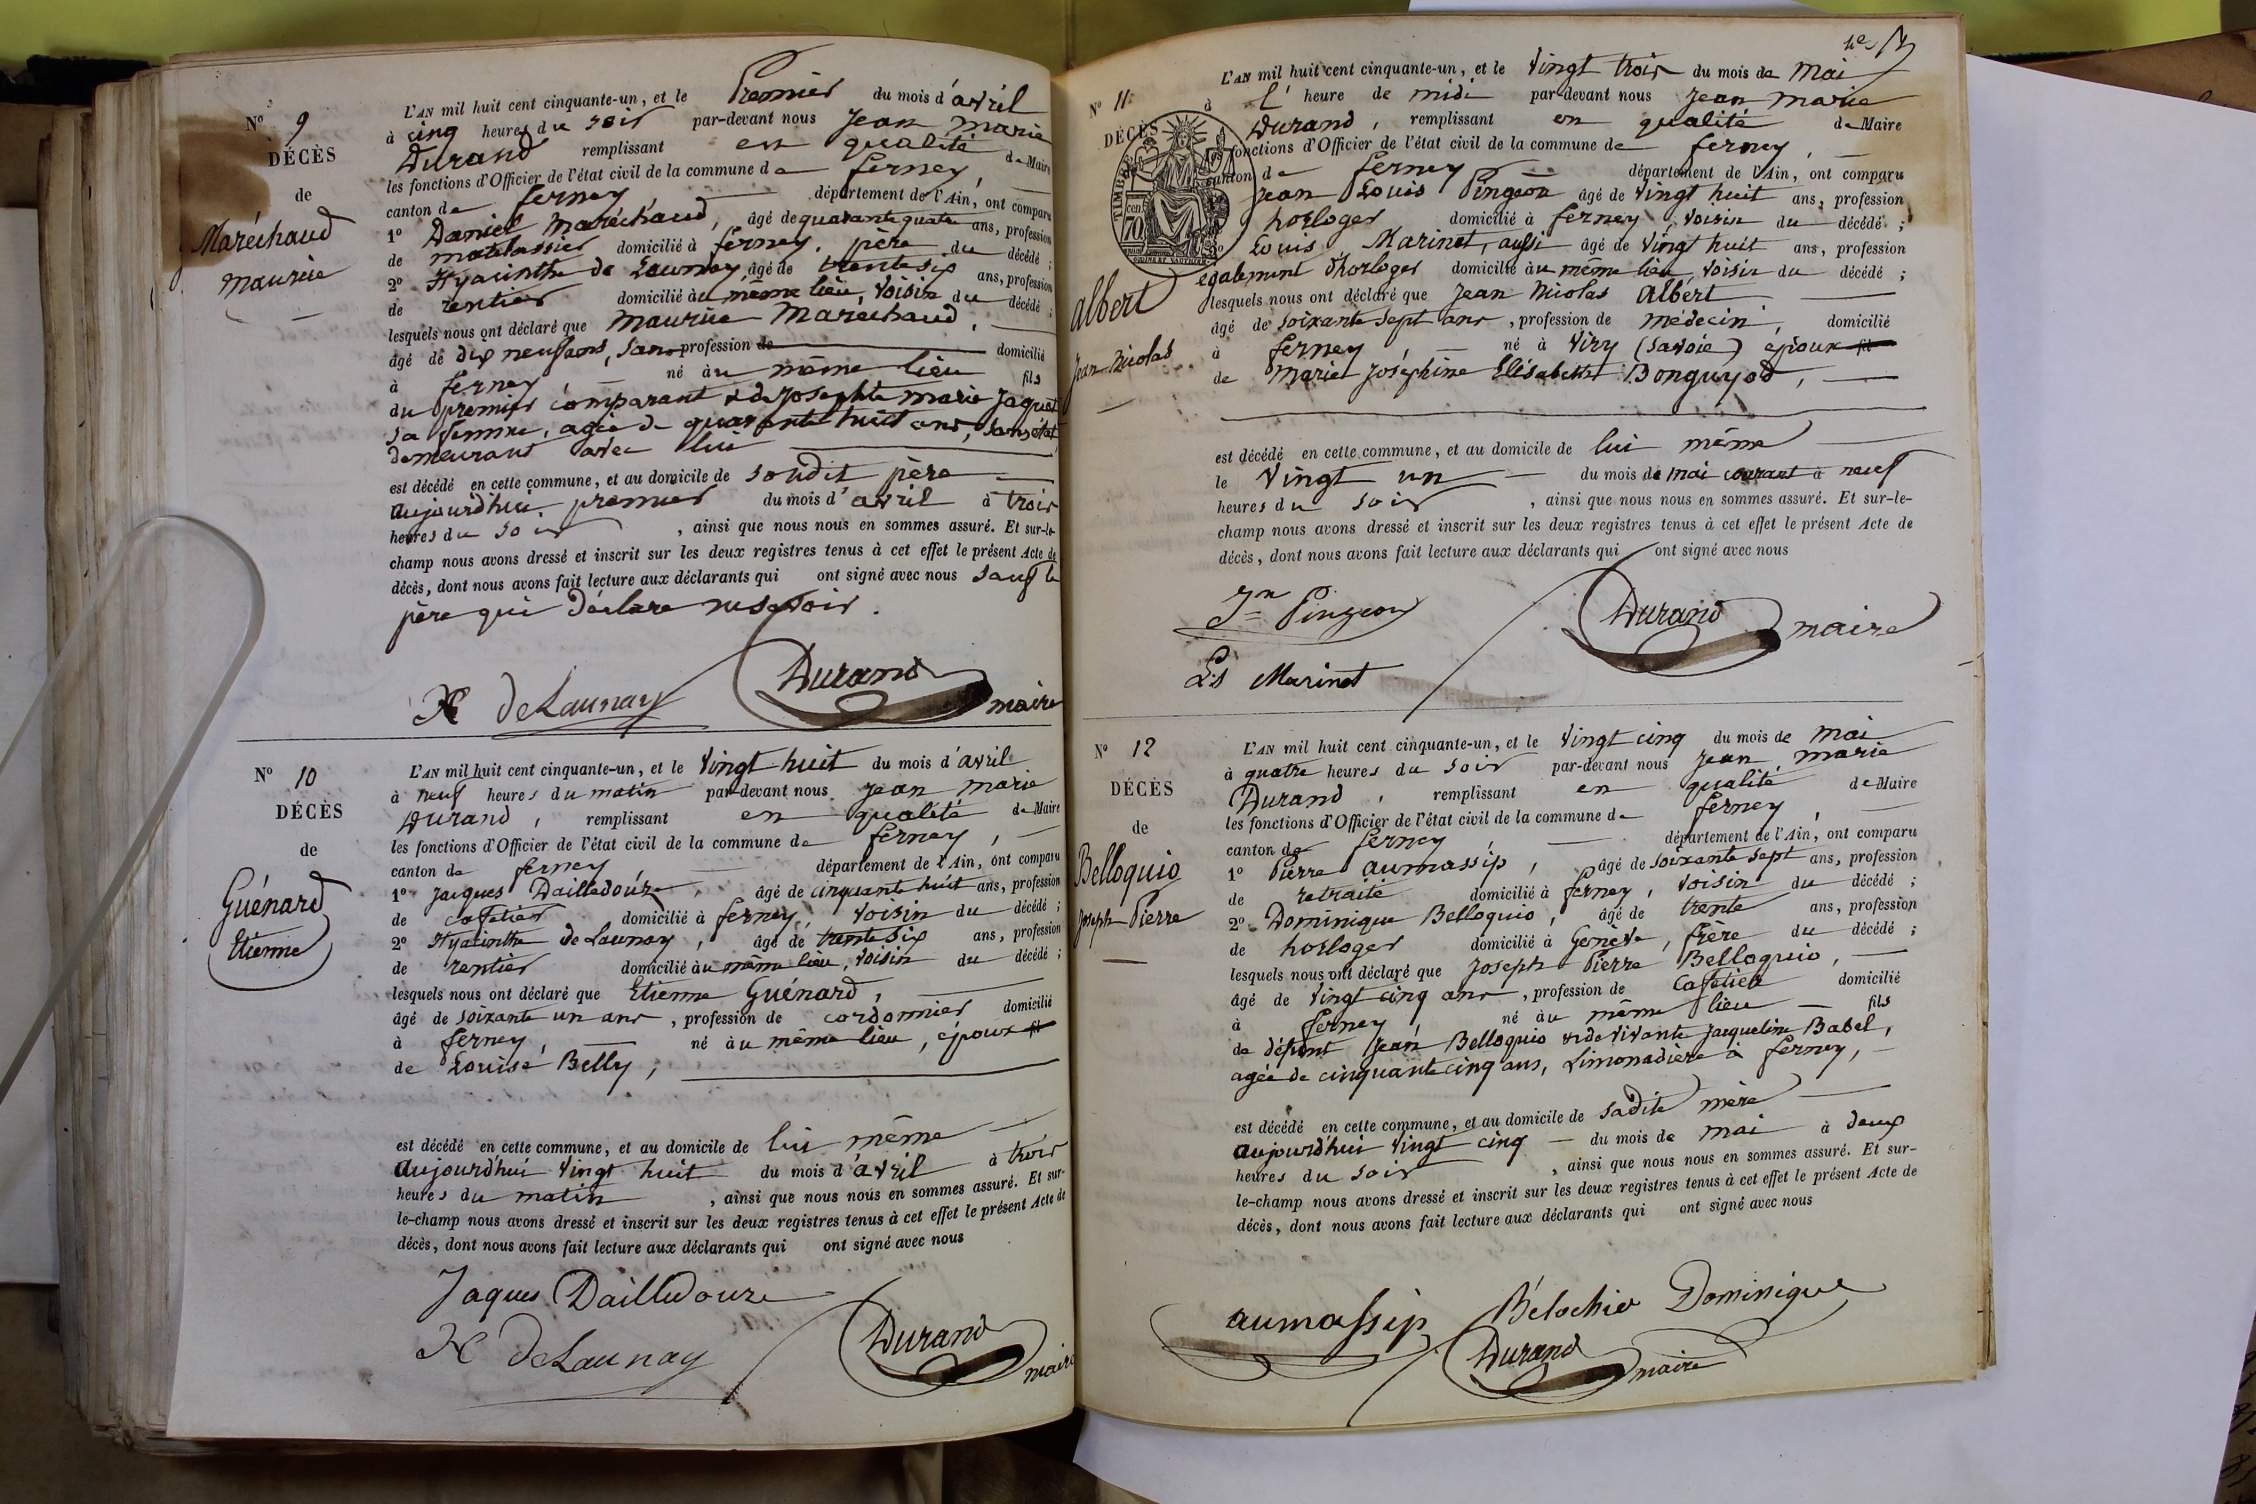 N° 9
DÉCÈS
de
Maréchaud
maurice
L'AN mil huit cent cinquante-un, et le Premier du mois d'avril
à cinq heures du soir par-devant nous Jean marie
Durand remplissant en qualité de Maire
les fonctions d'Officier de l'état civil de la commune de ferney,
canton de ferney département de l'Ain, ont comparu
1° Daniel Maréchaud, âgé de quarante quatre ans, profession
de matelassier domicilié à ferney, père du décédé ;
2° Hyacinthe de Launay, âgé de trente six ans, profession
de rentier domicilié au même lieu, voisin du décédé ;
lesquels nous ont déclaré que maurice Maréchaud,
âgé de dix neuf ans, sans profession de domicilié
à ferney né au même lieu fils
du premier comparant & de Josephte marie Jaquet
sa femme, agée de quarante huit ans, sans état,
demeurant avec lui
est décédé en cette commune, et au domicile de sondit père
aujourd'hui premier du mois d'avril à trois
heures du soir, ainsi que nous nous en sommes assuré. Et sur-le-
champ nous avons dressé et inscrit sur les deux registres tenus à cet effet le présent Acte de
décès, dont nous avons fait lecture aux déclarants qui ont signé avec nous sauf le
père qui déclare ne savoir.
H DeLaunay Durand maire
N° 10
DÉCÈS
de
Guénard
Etienne
L'AN mil huit cent cinquante-un, et le vingt huit du mois d'avril
à neuf heures du matin par-devant nous Jean marie
Durand, remplissant en qualité de Maire
les fonctions d'Officier de l'état civil de la commune de ferney,
canton de ferney département de l'Ain, ont comparu
1° Jacques Dailledouze, âgé de cinquante huit ans, profession
de cafetier domicilié à ferney, voisin du décédé ;
2° Hyacinthe de Launay, âgé de trente six ans, profession
de rentier domicilié au même lieu, voisin du décédé ;
lesquels nous ont déclaré que Etienne Guénard,
âgé de soixante un ans, profession de cordonnier domicilié
à ferney, né au même lieu, époux fil
de Louise Belly,
est décédé en cette commune, et au domicile de lui même
aujourd'hui vingt huit du mois d'avril à trois
heures du matin, ainsi que nous nous en sommes assuré. Et sur-
le-champ nous avons dressé et inscrit sur les deux registres tenus à cet effet le présent Acte de
décès, dont nous avons fait lecture aux déclarants qui ont signé avec nous
Jaques Dailledouze
H DeLaunay Durand maire
N° 11
DÉCÈS
TIMBRE
70 cen.
albert
Jean Nicolas
L'AN mil huit cent cinquante-un, et le vingt trois du mois de mai
à l' heure de midi par-devant nous Jean marie
Durand, remplissant en qualité de Maire
les fonctions d'Officier de l'état civil de la commune de ferney,
canton de ferney département de l'Ain, ont comparu
Jean Louis Pingeon âgé de vingt huit ans, profession
horloger domicilié à ferney, voisin du décédé ;
2° Louis Marinet, aussi âgé de vingt huit ans, profession
également d'horloger domicilié au même lieu, voisin du décédé ;
lesquels nous ont déclaré que Jean Nicolas Albert
âgé de soixante sept ans, profession de médecin, domicilié
à ferney, né à Viry (Savoie) époux fil
de Marie Joséphine Elisabeth Bonguyod,
est décédé en cette commune, et au domicile de lui même
le vingt un du mois de mai courant à neuf
heures du soir, ainsi que nous nous en sommes assuré. Et sur-le-
champ nous avons dressé et inscrit sur les deux registres tenus à cet effet le présent Acte de
décès, dont nous avons fait lecture aux déclarants qui ont signé avec nous
Jn Pingeon Durand maire
Ls Marinet
N° 12
DÉCÈS
de
Belloquio
Joseph Pierre
L'AN mil huit cent cinquante-un, et le vingt cinq du mois de mai
à quatre heures du soir par-devant nous Jean marie
Durand, remplissant en qualité de Maire
les fonctions d'Officier de l'état civil de la commune de ferney,
canton de ferney, département de l'Ain, ont comparu
1° Pierre aumassip, âgé de soixante sept ans, profession
de retraité domicilié à ferney, voisin du décédé ;
2° Dominique Belloquio, âgé de trente ans, profession
de horloger domicilié à Genève, frère du décédé ;
lesquels nous ont déclaré que Joseph Pierre Belloquio,
âgé de vingt cinq ans, profession de cafetier domicilié
à ferney, né au même lieu fils
de défunt Jean Belloquio & de vivante Jacqueline Babel,
agée de cinquante cinq ans, Limonadière à ferney,
est décédé en cette commune, et au domicile de sadite mère
aujourd'hui vingt cinq du mois de mai à deux
heures du soir, ainsi que nous nous en sommes assuré. Et sur-
le-champ nous avons dressé et inscrit sur les deux registres tenus à cet effet le présent Acte de
décès, dont nous avons fait lecture aux déclarants qui ont signé avec nous
aumassip Bélochio Dominique
Durand maire